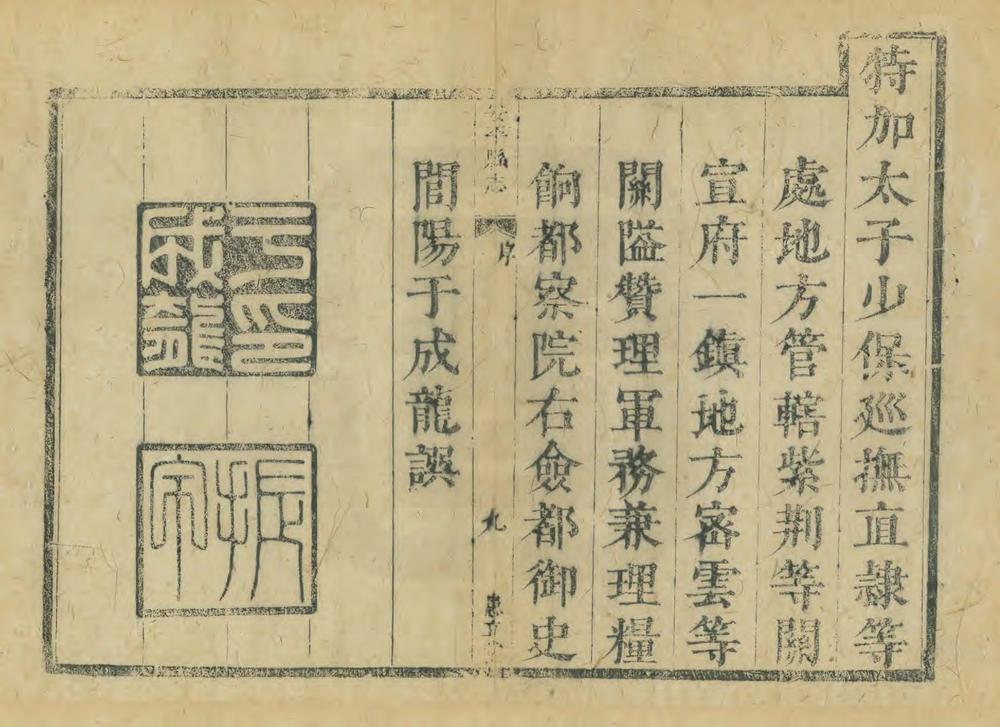 特加太子少保廵撫直隷等
處地方管轄紫荆等關
宣府一鎮地方密雲等
關隘贊理軍務兼理糧
餉都察院右僉都御史
安平縣志
序
九
閭陽于成龍譔
于印成龍
振甲